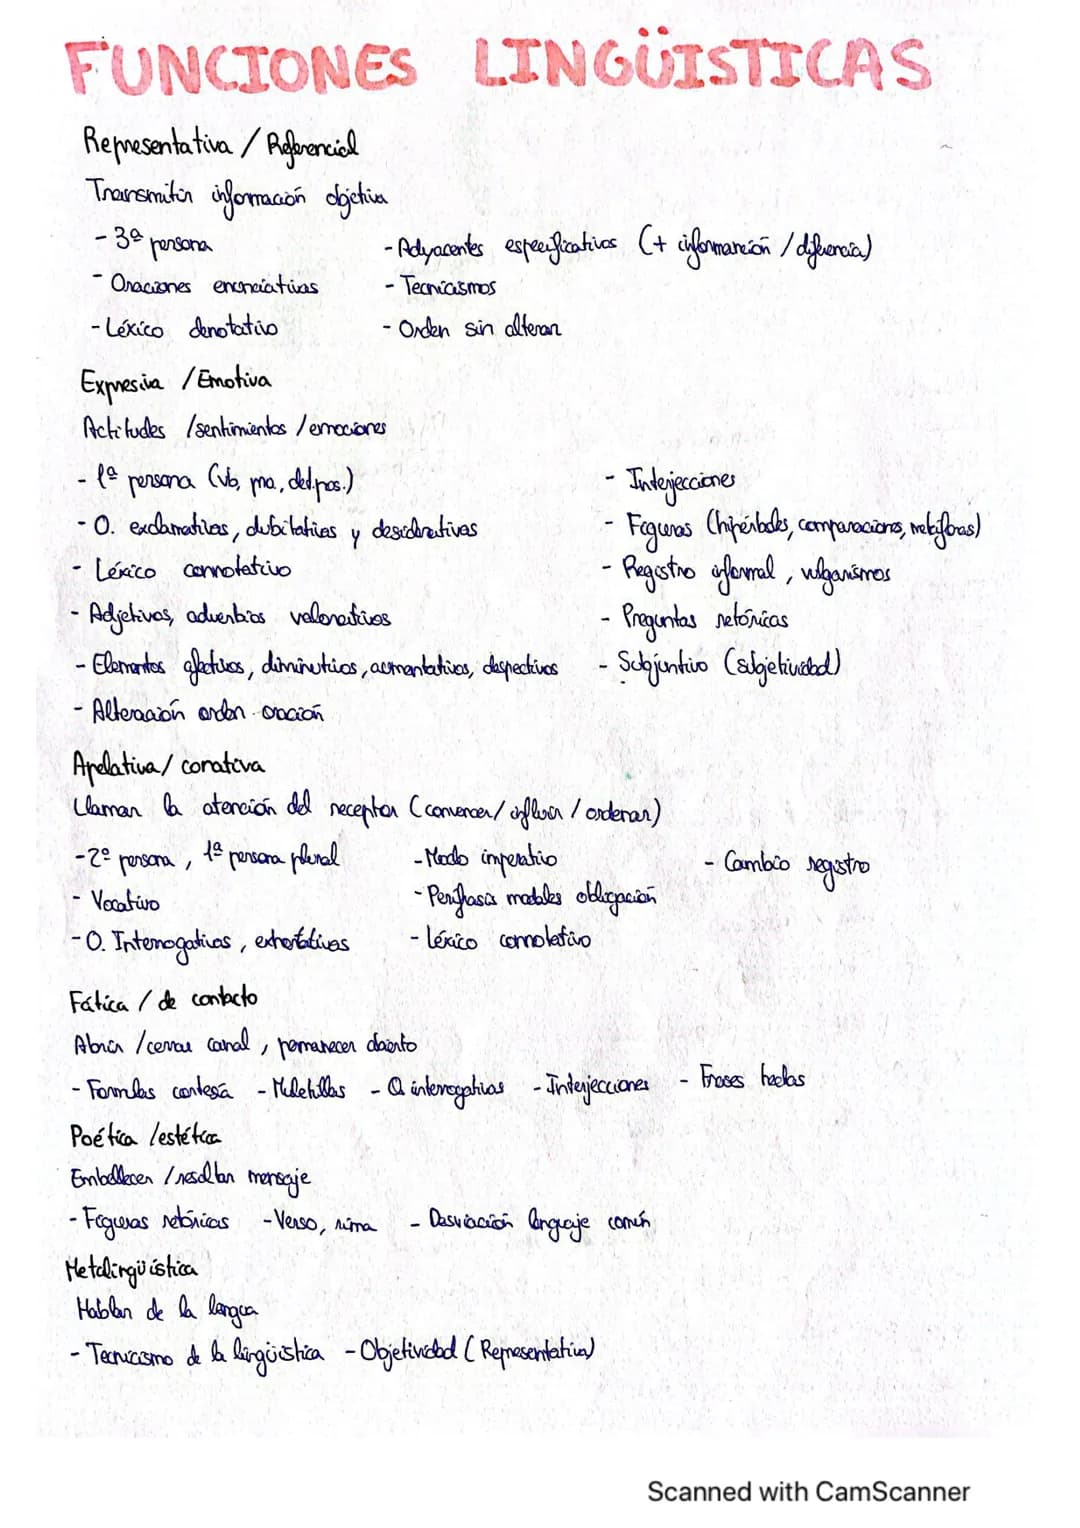 FUNCIONES LINGÜISTICAS
Representativa / Referencial
Transmitir información objetiva
- 3ª persona
- Adyacentes especificativos (+ información / diferencia)
- Oraciones enunciativas
- Tecnicismos
- Léxico denotativo
- Orden sin alterar
Expresiva / Emotiva
Actitudes / sentimientos / emociones
- 1ª persona (vb, pna, det.pos.)
- Interjecciones
- O. exclamativas, dubitativas y desiderativas
- Figuras (hipérboles, comparaciones, metáforas)
- Léxico connotativo
- Registro informal, vulgarismos
- Adjetivos, adverbios valorativos
- Preguntas retóricas
- Elementos afectivos, diminutivos, aumentativos, despectivos
- Subjuntivo (subjetividad)
- Alteración orden oración
Apelativa / conativa
Llamar la atención del receptor (convencer / influir / ordenar)
- 2ª persona, 1ª persona plural
- Modo imperativo
- Cambio registro
- Vocativo
- Perífrasis modales obligación
- O. Interrogativas, exhortativas
- Léxico connotativo
Fática / de contacto
Abrir / cerrar canal, permanecer abierto
- Formulas cortesía - Muletillas - O. interrogativas - Interjecciones - Frases hechas
Poética / estética
Embellecer / resaltar mensaje
- Figuras retóricas - Verso, rima - Desviación lenguaje común
Metalingüística
Hablar de la lengua
- Tecnicismo de la lingüística - Objetividad (Representativa)
Scanned with CamScanner